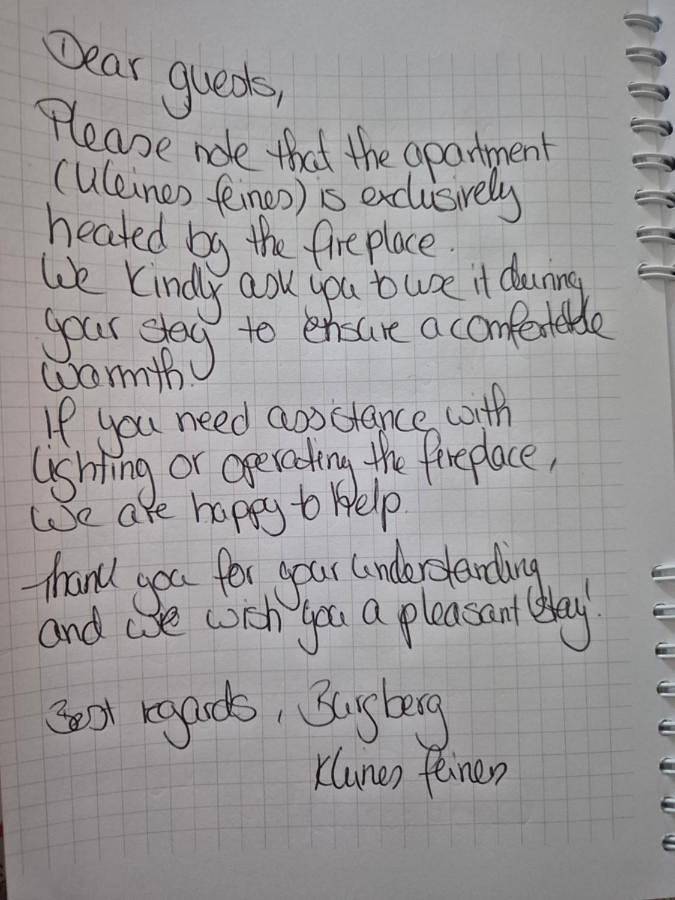 Dear guests,
Please note that the apartment
(Kleines feines) is exclusively
heated by the fireplace.
We kindly ask you to use it during
your stay to ensure a comfortable
warmth.
If you need assistance with
lighting or operating the fireplace,
we are happy to help.
Thank you for your understanding
and we wish you a pleasant stay!
Best regards, Burgberg
Kleines feines